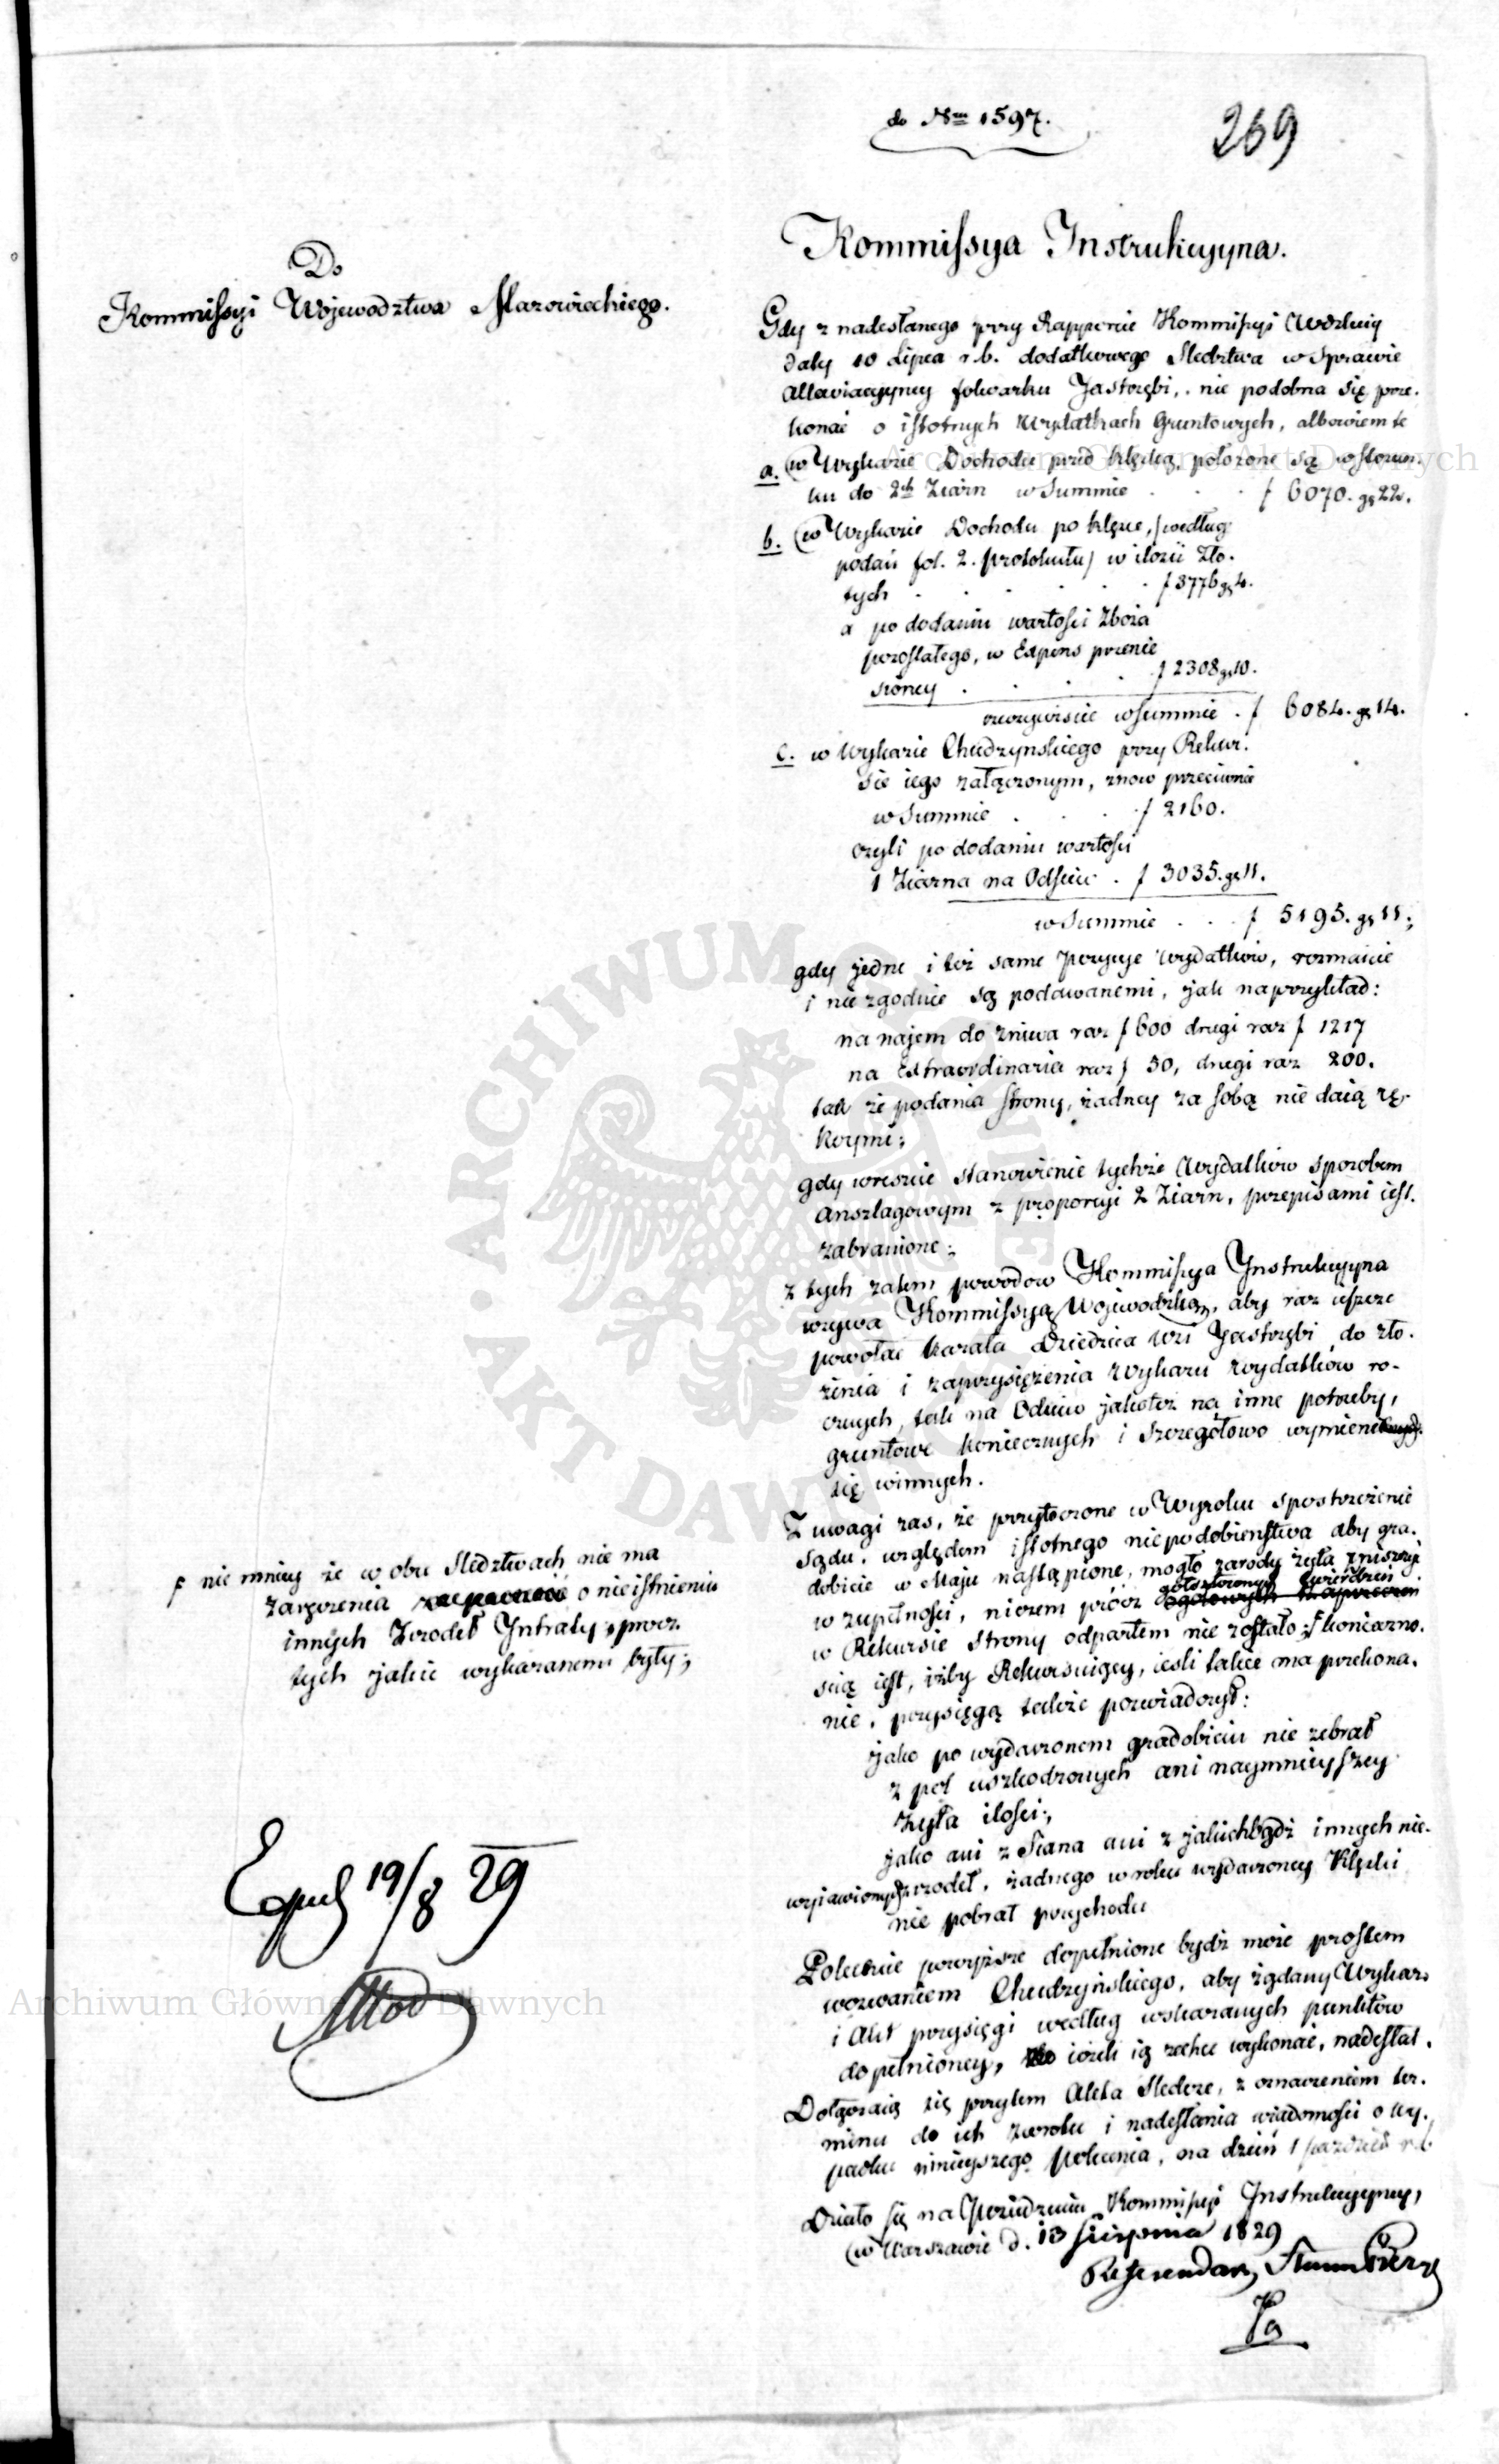 do Nru 1597.
269
Do
Kommissyi Województwa Mazowieckiego.
Kommissya Instrukcyyna.
Gdy z nadesłanego przy Rapporcie Kommissyi Wdzkiey
daty 10 Lipca r.b. dodatkowego Sledztwa w Sprawie
Allewiacyyney folwarku Jastrzębi, nie podobna się prze-
konać o istotnych Wydatkach Gruntowych, albowiem te
a. w Wykazie Dochodu przed klęską, położone są w stosun-
ku do 2ch Ziarn w Summie . . . f 6070. gr 22.
b. w Wykazie Dochodu po klęsce, /według
podań fol. 2. protokułu/ w ilości Zło-
tych . . . . . f 3776 gr 4.
a po dodaniu wartości Zboża
pozostałego, w Expens przenie
sioney . . . . f 2308 gr 10.
rzeczywiście w summie . f 6084. gr 14.
c. w Wykazie Chudzynskiego przy Rekur-
sie iego załączonym, znow przeciwnie
w Summie . . . f 2160.
czyli po dodaniu wartości
1 Ziarna na Odsiew . f 3035. gr 11.
w Summie . . . f 5195. gr 11;
gdy jedne i też same pozycye wydatków, rozmaicie
i nie zgodnie są podawanemi, jak naprzykład:
na najem do żniwa raz f 600 drugi raz f 1217
na Extraordinaria raz f 50, drugi raz 200.
tak że podania Strony, żadney za sobą nie daią rę-
koymi;
gdy wreszcie stanowienie tychże Wydatków sposobem
anszlagowym z proporcyi 2 Ziarn, przepisami iest
zabronione;
z tych zatem powodow Kommissya Instrukcyyna
wzywa Kommissyą Wojewodzką, aby raz ieszcze
powołać kazała Dziedzica Wsi Jastrzębi do zło-
żenia i zaprzysiężenia Wykazu wydatków ro-
cznych, tak na Odsiew jakoteż na inne potrzeby,
gruntowe koniecznych i szczegółowo wymienić
się winnych.
Z uwagi zas, że przytoczone w Wyroku spostrzeżenie
Sądu, względem istotnego niepodobieństwa aby gra-
dobicie w Maju nastąpione, mogło zarody żyta zniszczyć
w zupełności, niczem prócz gołosłownych twierdzeń
w Rekursie Strony odpartem nie zostało; F konieczno-
ścią iest, iżby Rekursuiący, iesli takie ma przekona-
nie, przysięgą takoże poswiadczył:
jako po wydarzonem gradobiciu nie zebrał
z pol uszkodzonych ani naymnieyszey
żyta ilości;
jako ani z Siana ani z jakichbądź innych nie-
wyiawionych zrodeł, żadnego w roku wydarzoney Klęski
nie pobrał przychodu
Polecenie powyższe dopełnione bydź może prostem
wezwaniem Chudzyńskiego, aby żądany Wykaz
i Akt przysięgi według wskazanych punktów
dopełnioney, iżeli ią zechce wykonać, nadesłał.
Dołączaią się przytem Akta Sledcze, z oznaczeniem ter-
minu do ich zwrotu i nadesłania wiadomości o wy-
padku ninieyszego polecenia, na dzień 1 październ r.b.
Działo się na Posiedzeniu Kommissyi Instrukcyyney,
w Warszawie d. 13 Sierpnia 1829
Referendarz
F nie mniey że w obu Sledztwach nie ma
zaręczenia o nieistnieniu
innych Zrodeł Intraty, procz
tych jakie wykazanemi były;
Exped 19/8 29